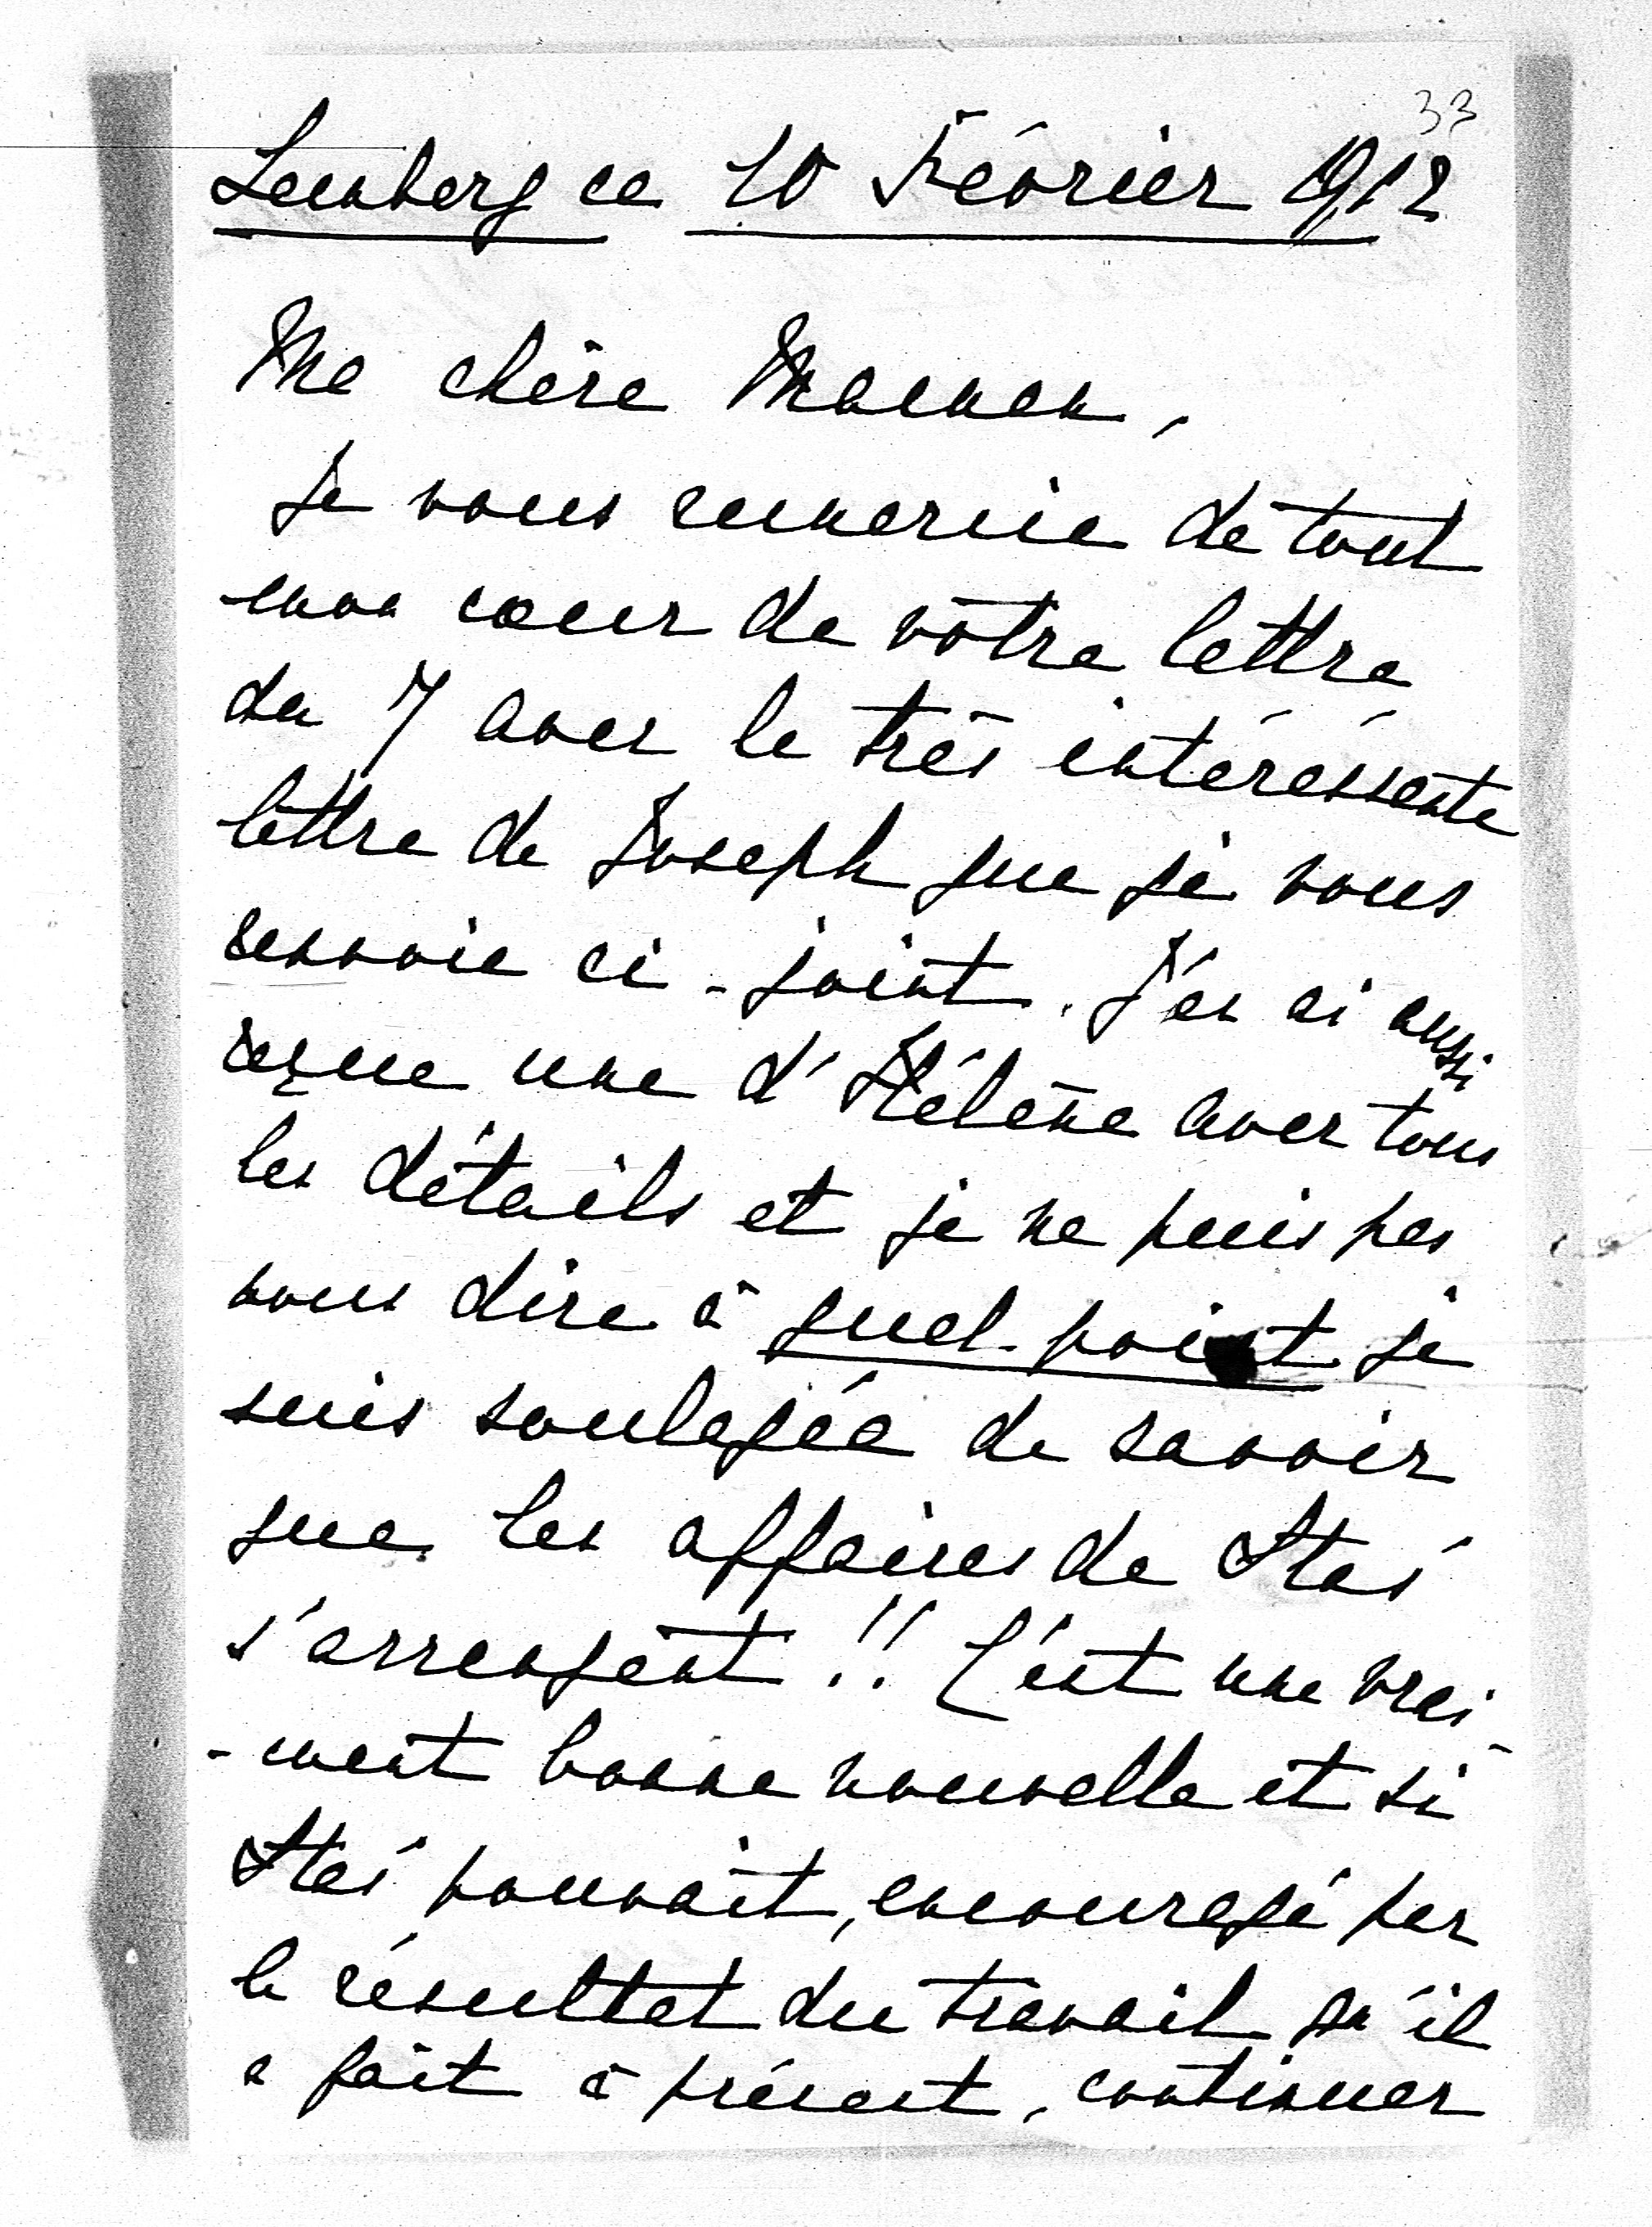 33
Lemberg ce 10 Février 1912
Ma chère Maman,
Je vous remercie de tout
mon cœur de vôtre lettre
du 7 avec la très intéressante
lettre de Joseph que je vous
renvoie ci-joint. J'en ai aussi
reçue une d'Hélène avec tous
les détails et je ne puis pas
vous dire à quel point je
suis soulagée de savoir
que les affaires de Staś
s'arrangent!! C'est une vrai-
-ment bonne nouvelle et si
Staś pouvait, encouragé par
le résultat du travail qu'il
a fait à présent, continuer